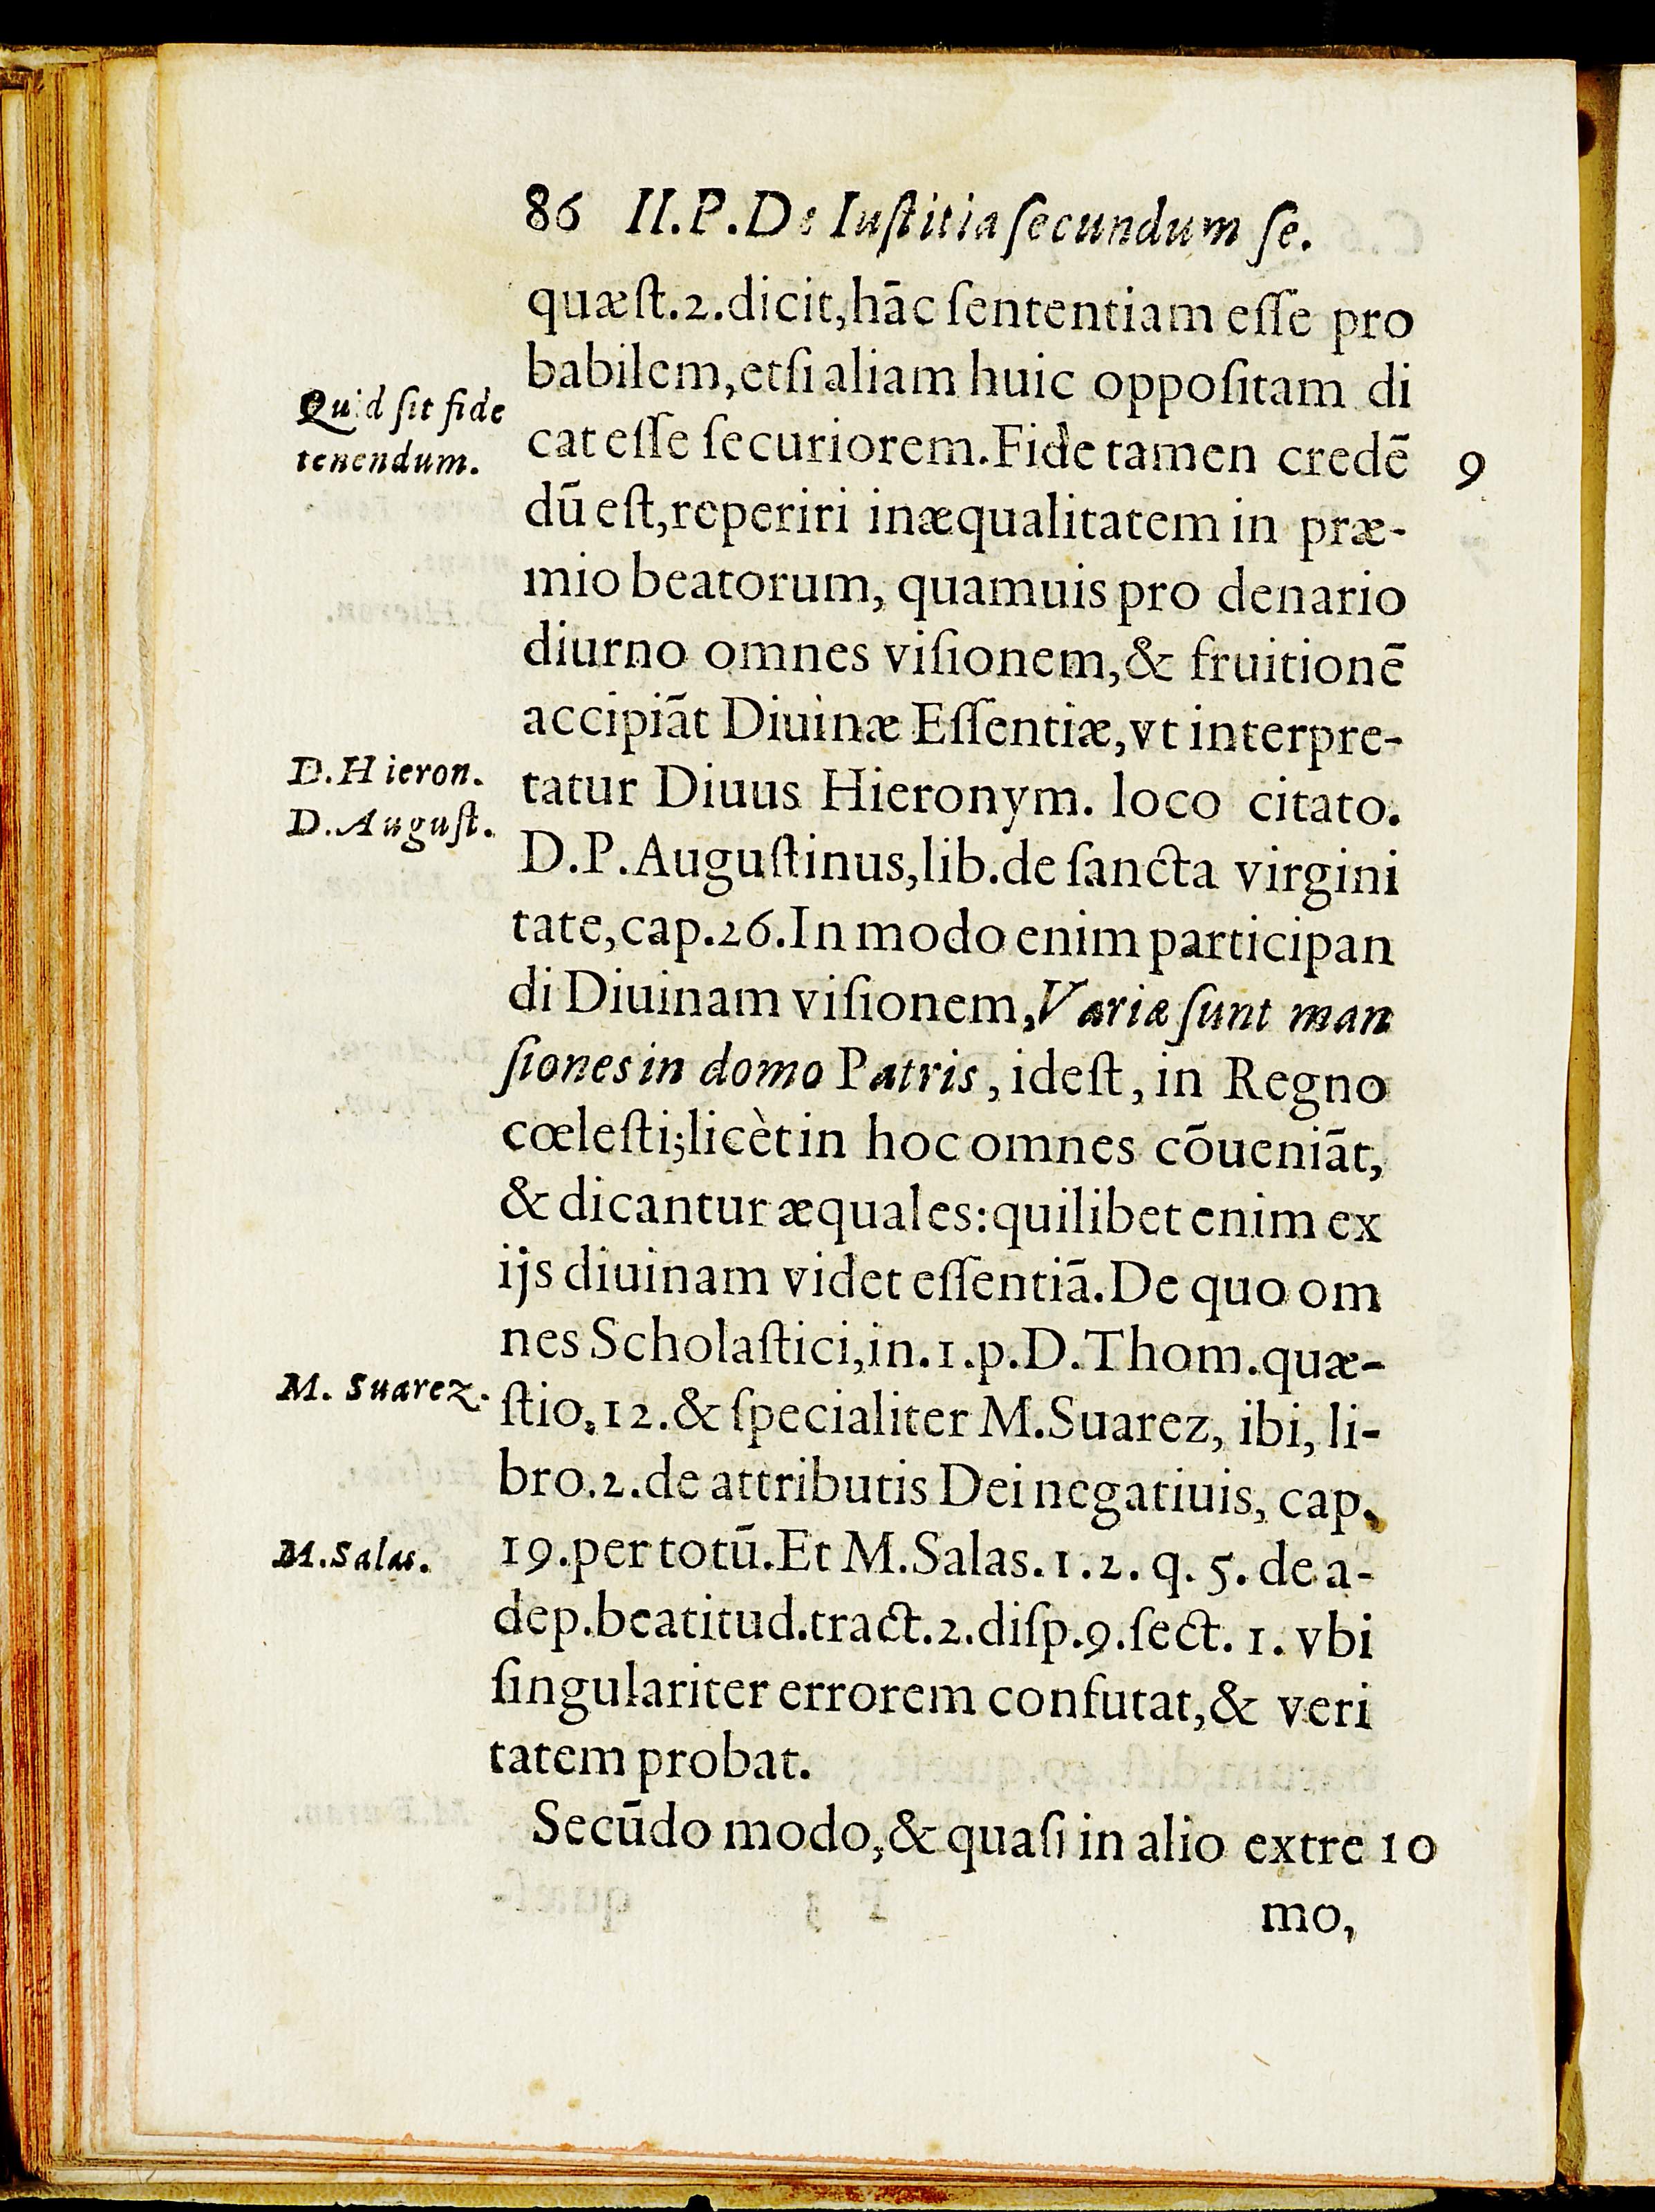 86 II.P.De Iuſtitia ſecundum ſe.
quæſt.2.dicit,hāc ſententiam eſſe pro
babilem,etſi aliam huic oppoſitam di
Quid ſit fide
tenendum.
cat eſſe ſecuriorem.Fide tamen credē 9
dū eſt,reperiri inæqualitatem in præ-
mio beatorum, quamuis pro denario
diurno omnes viſionem,& fruitionē
accipiāt Diuinæ Eſſentiæ,vt interpre-
D.Hieron.
tatur Diuus Hieronym. loco citato.
D.Auguſt.
D.P.Auguſtinus,lib.de ſancta virgini
tate,cap.26.In modo enim participan
di Diuinam viſionem,Variæ ſunt man
ſiones in domo Patris, ideſt, in Regno
cœleſti;licèt in hoc omnes cōueniāt,
& dicantur æquales:quilibet enim ex
ijs diuinam videt eſſentiā.De quo om
nes Scholaſtici,in.1.p.D.Thom.quæ-
M. Suarez.
ſtio.12.& ſpecialiter M.Suarez, ibi, li-
bro.2.de attributis Dei negatiuis, cap.
M.Salas.
19.per totū.Et M.Salas.1.2.q.5.de a-
dep.beatitud.tract.2.diſp.9.ſect. 1. vbi
ſingulariter errorem confutat,& veri
tatem probat.
Secūdo modo,& quaſi in alio extre 10
mo,